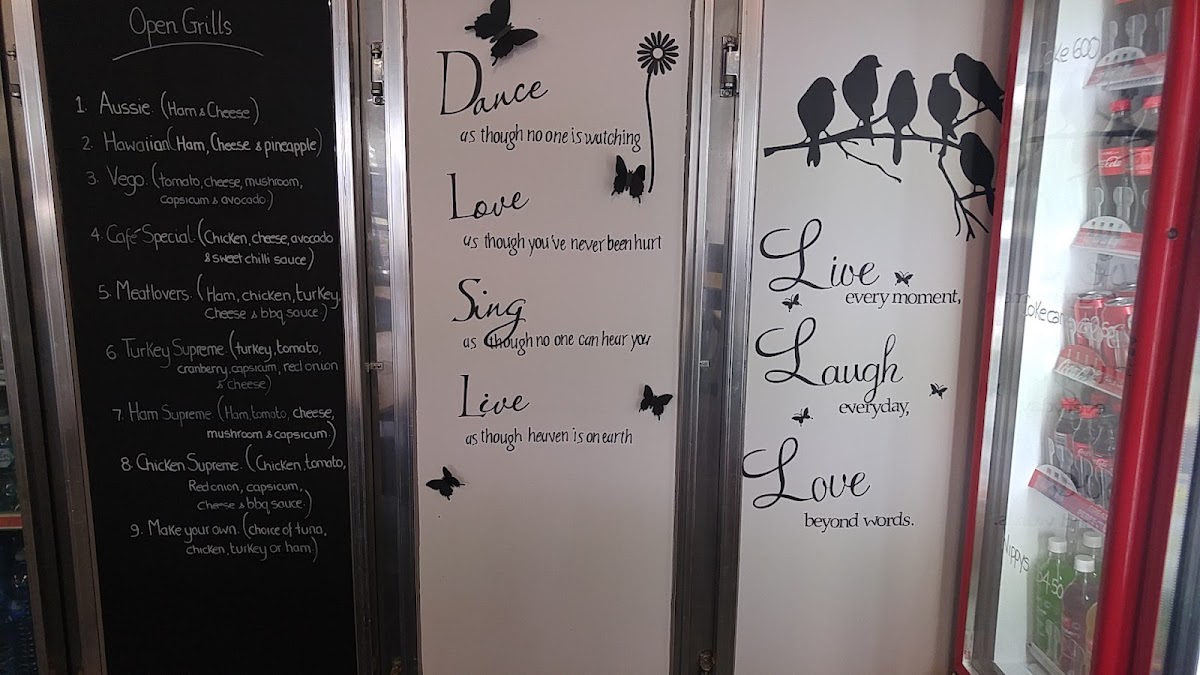 Open Grills
1. Aussie. (Ham & Cheese)
2. Hawaiian (Ham, Cheese & pineapple)
3. Vego. (tomato, cheese, mushroom,
capsicum & avocado.)
4. Café Special. (Chicken, cheese, avocado
& sweet chilli sauce)
5. Meatlovers. (Ham, chicken, turkey,
Cheese & bbq sauce.)
6. Turkey Supreme. (turkey, tomato,
cranberry, capsicum, red onion
& cheese)
7. Ham Supreme. (Ham, tomato, cheese,
mushroom & capsicum.)
8. Chicken Supreme. (Chicken, tomato,
Red onion, capsicum,
cheese & bbq sauce.)
9. Make your own. (choice of tuna,
chicken, turkey or ham)
Dance
as though no one is watching
Love
as though you've never been hurt
Sing
as though no one can hear you
Live
as though heaven is on earth
Live
every moment,
Laugh
everyday,
Love
beyond words.
Coke 600
Coke can
Nippys
$4.50